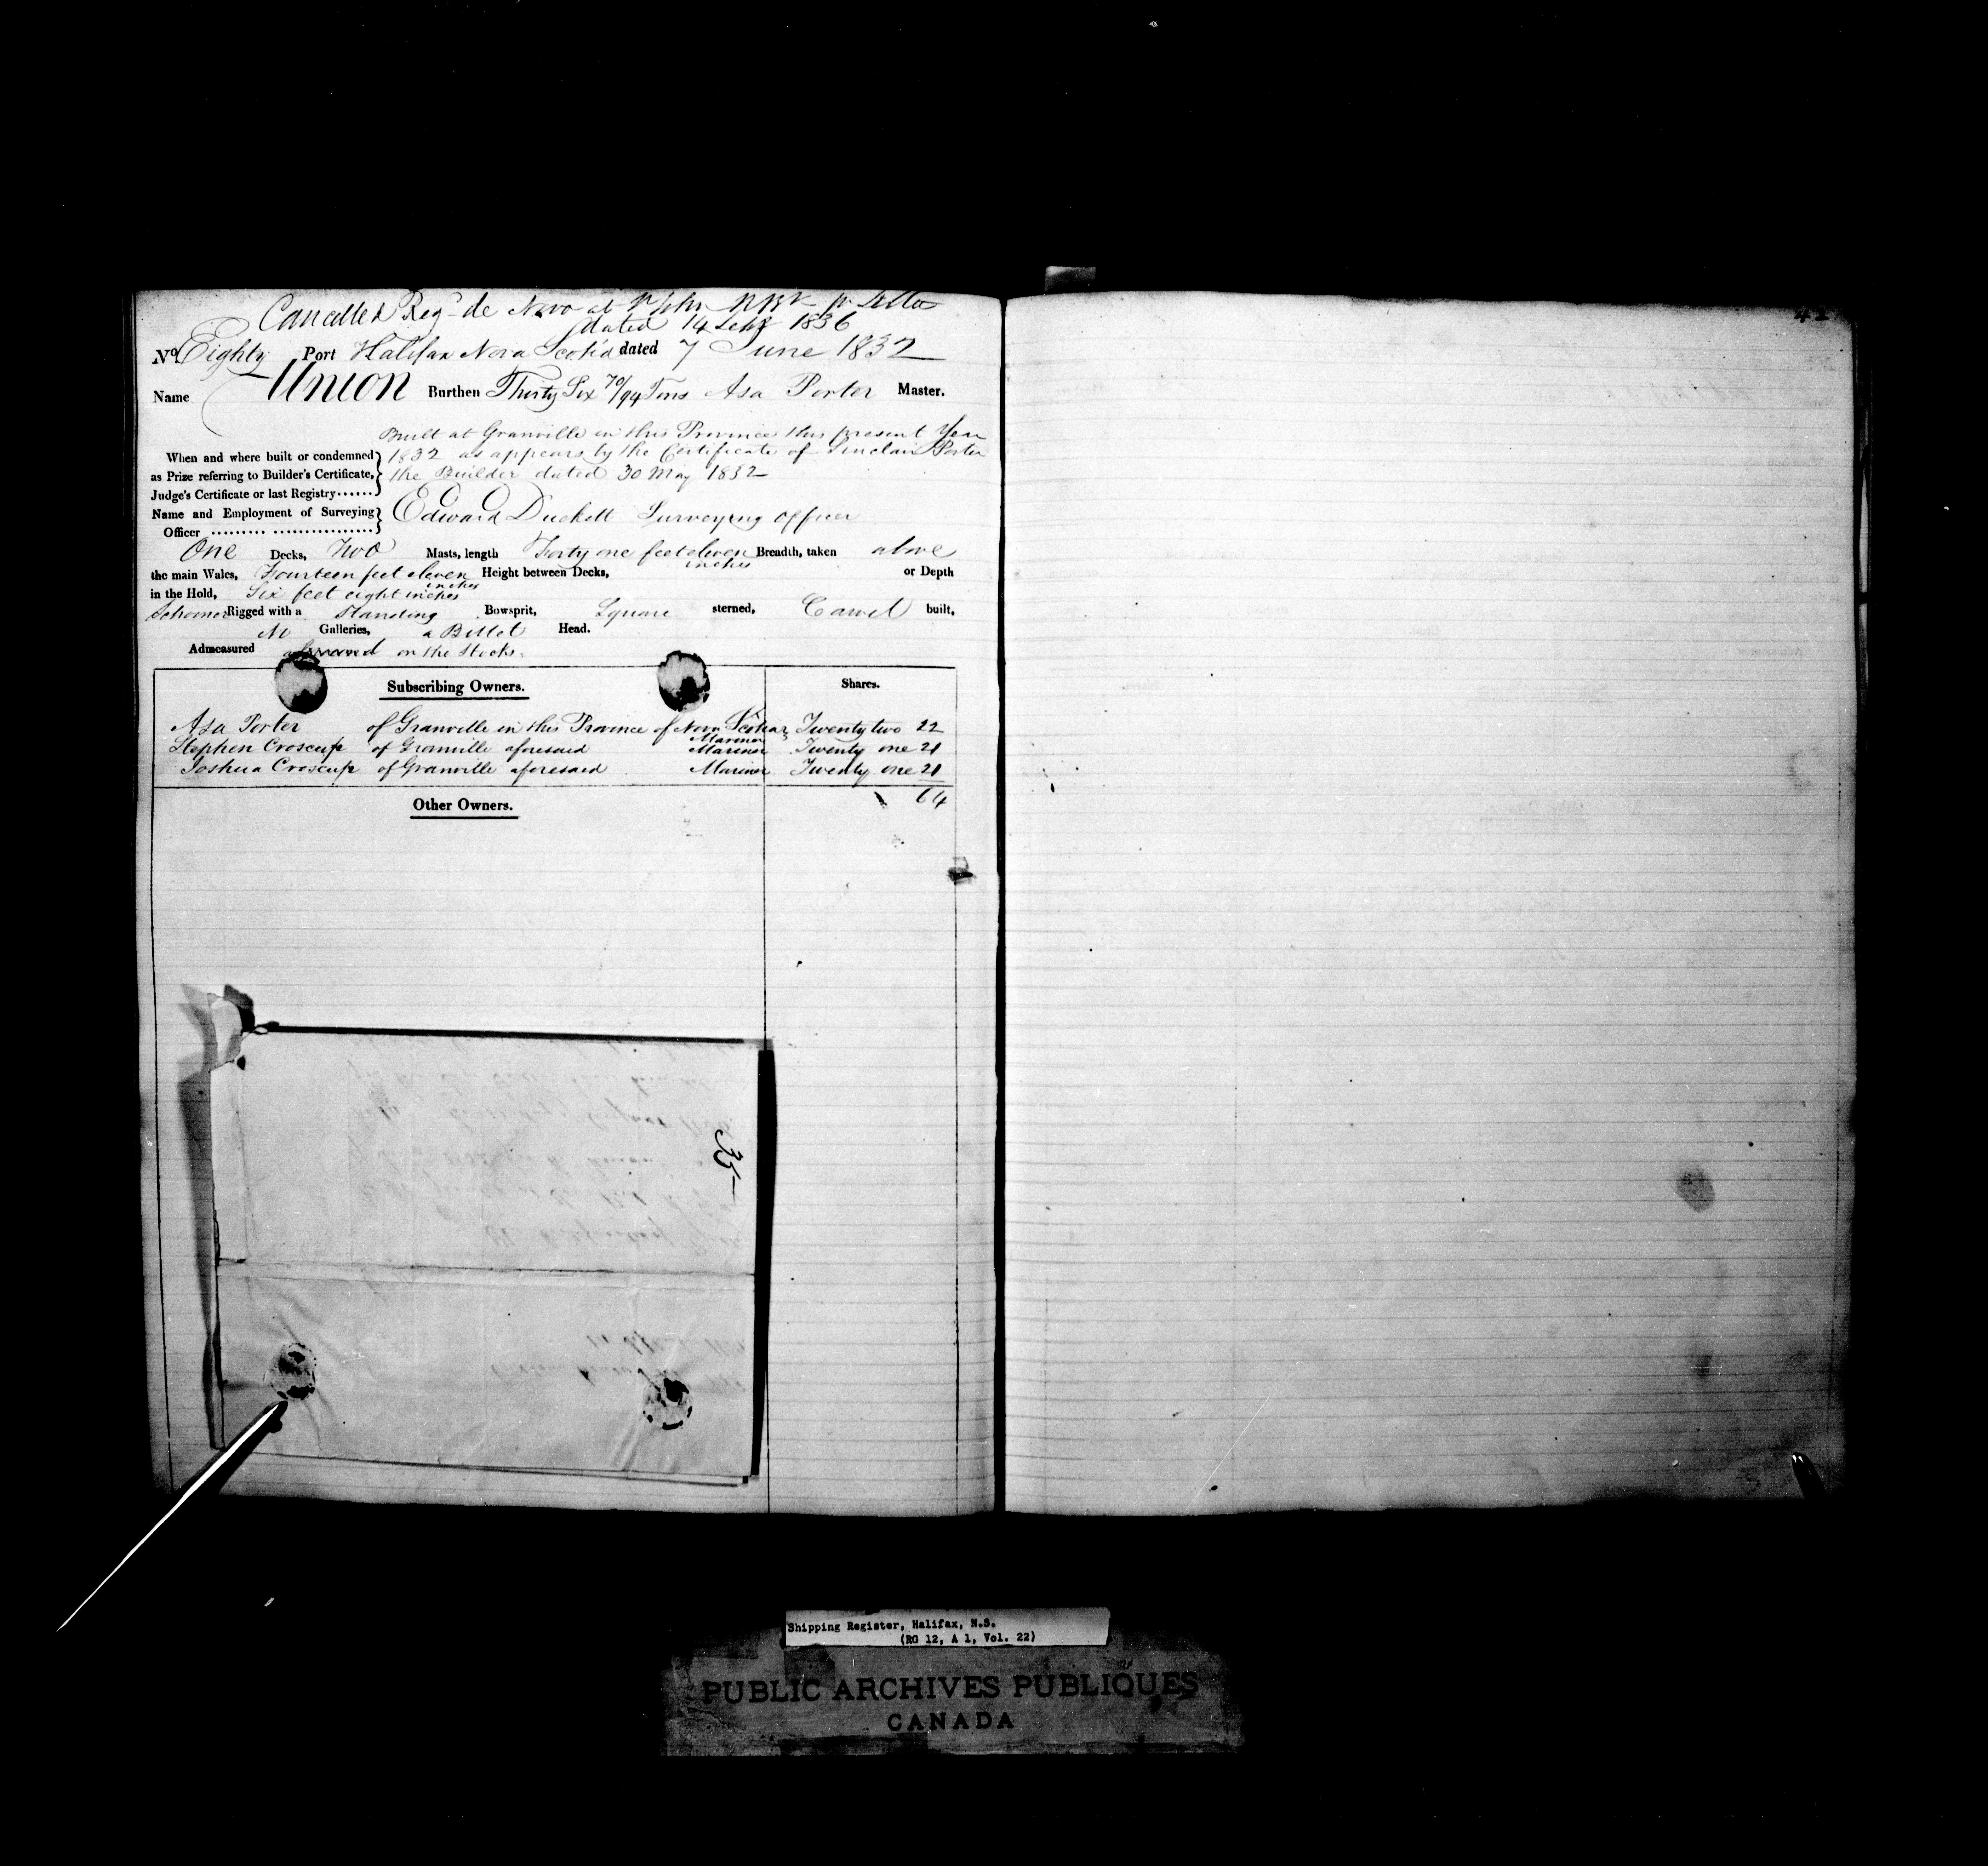 Cancelled Reg de Novo at St John NBk pr Letter
dated 14 Sept 1836
No. Eighty Port Halifax Nova Scotia dated 7 June 1832
Name Union Burthen Thirty Six 70/94 Tons Asa Porter Master.
Built at Granville in this Province this present Year
When and where built or condemned 1832 as appears by the Certificate of Sinclair Porter
as Prize referring to Builder's Certificate, the Builder dated 30 May 1832
Judge's Certificate or last Registry......
Name and Employment of Surveying Edward Duckett Surveying Officer
Officer ......... .................
One Decks, Two Masts, length Forty one feet eleven inches Breadth, taken above
the main Wales, Fourteen feet eleven inches Height between Decks, or Depth
in the Hold, Six feet eight inches
Schooner Rigged with a Standing Bowsprit, Square sterned, Carvel built,
No Galleries, a Billet Head.
Admeasured on the Stocks.
Subscribing Owners. Shares.
Asa Porter of Granville in this Province of Nova Scotia Mariner Twenty two 22
Stephen Croscup of Granville aforesaid Mariner Twenty one 21
Joshua Croscup of Granville aforesaid Mariner Twenty one 21
64
Other Owners.
35
42
Shipping Register, Halifax, N.S.
(RG 12, A 1, Vol. 22)
PUBLIC ARCHIVES PUBLIQUES
CANADA